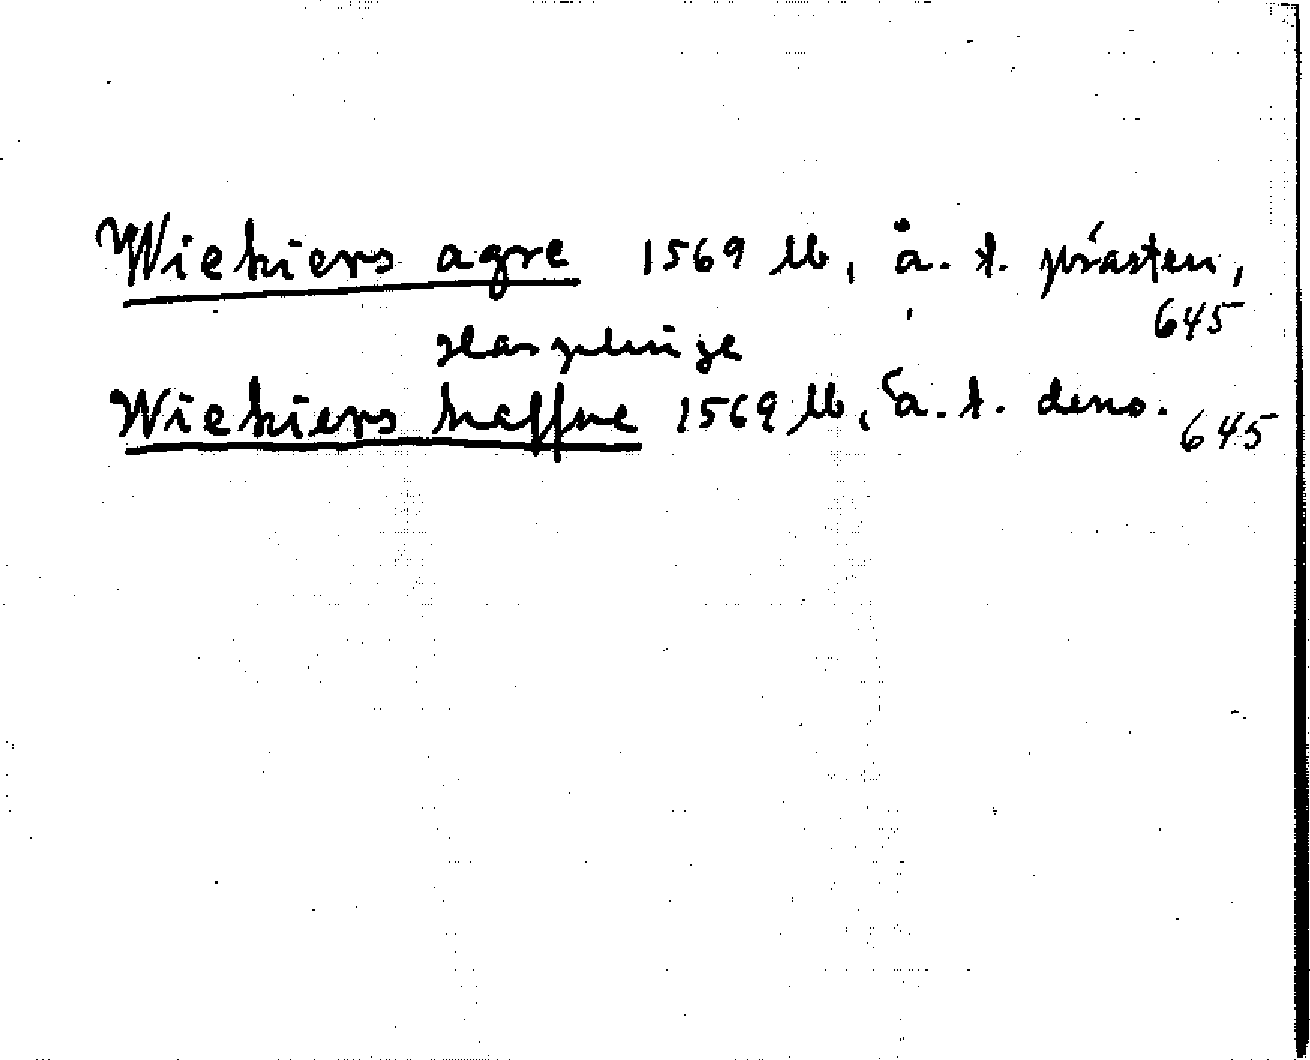 Wiekiers agre 1569 lb, å. t. prästen,
645
Hasplinge
Wiekiers heffne 1569 lb, å. t. dens.
645